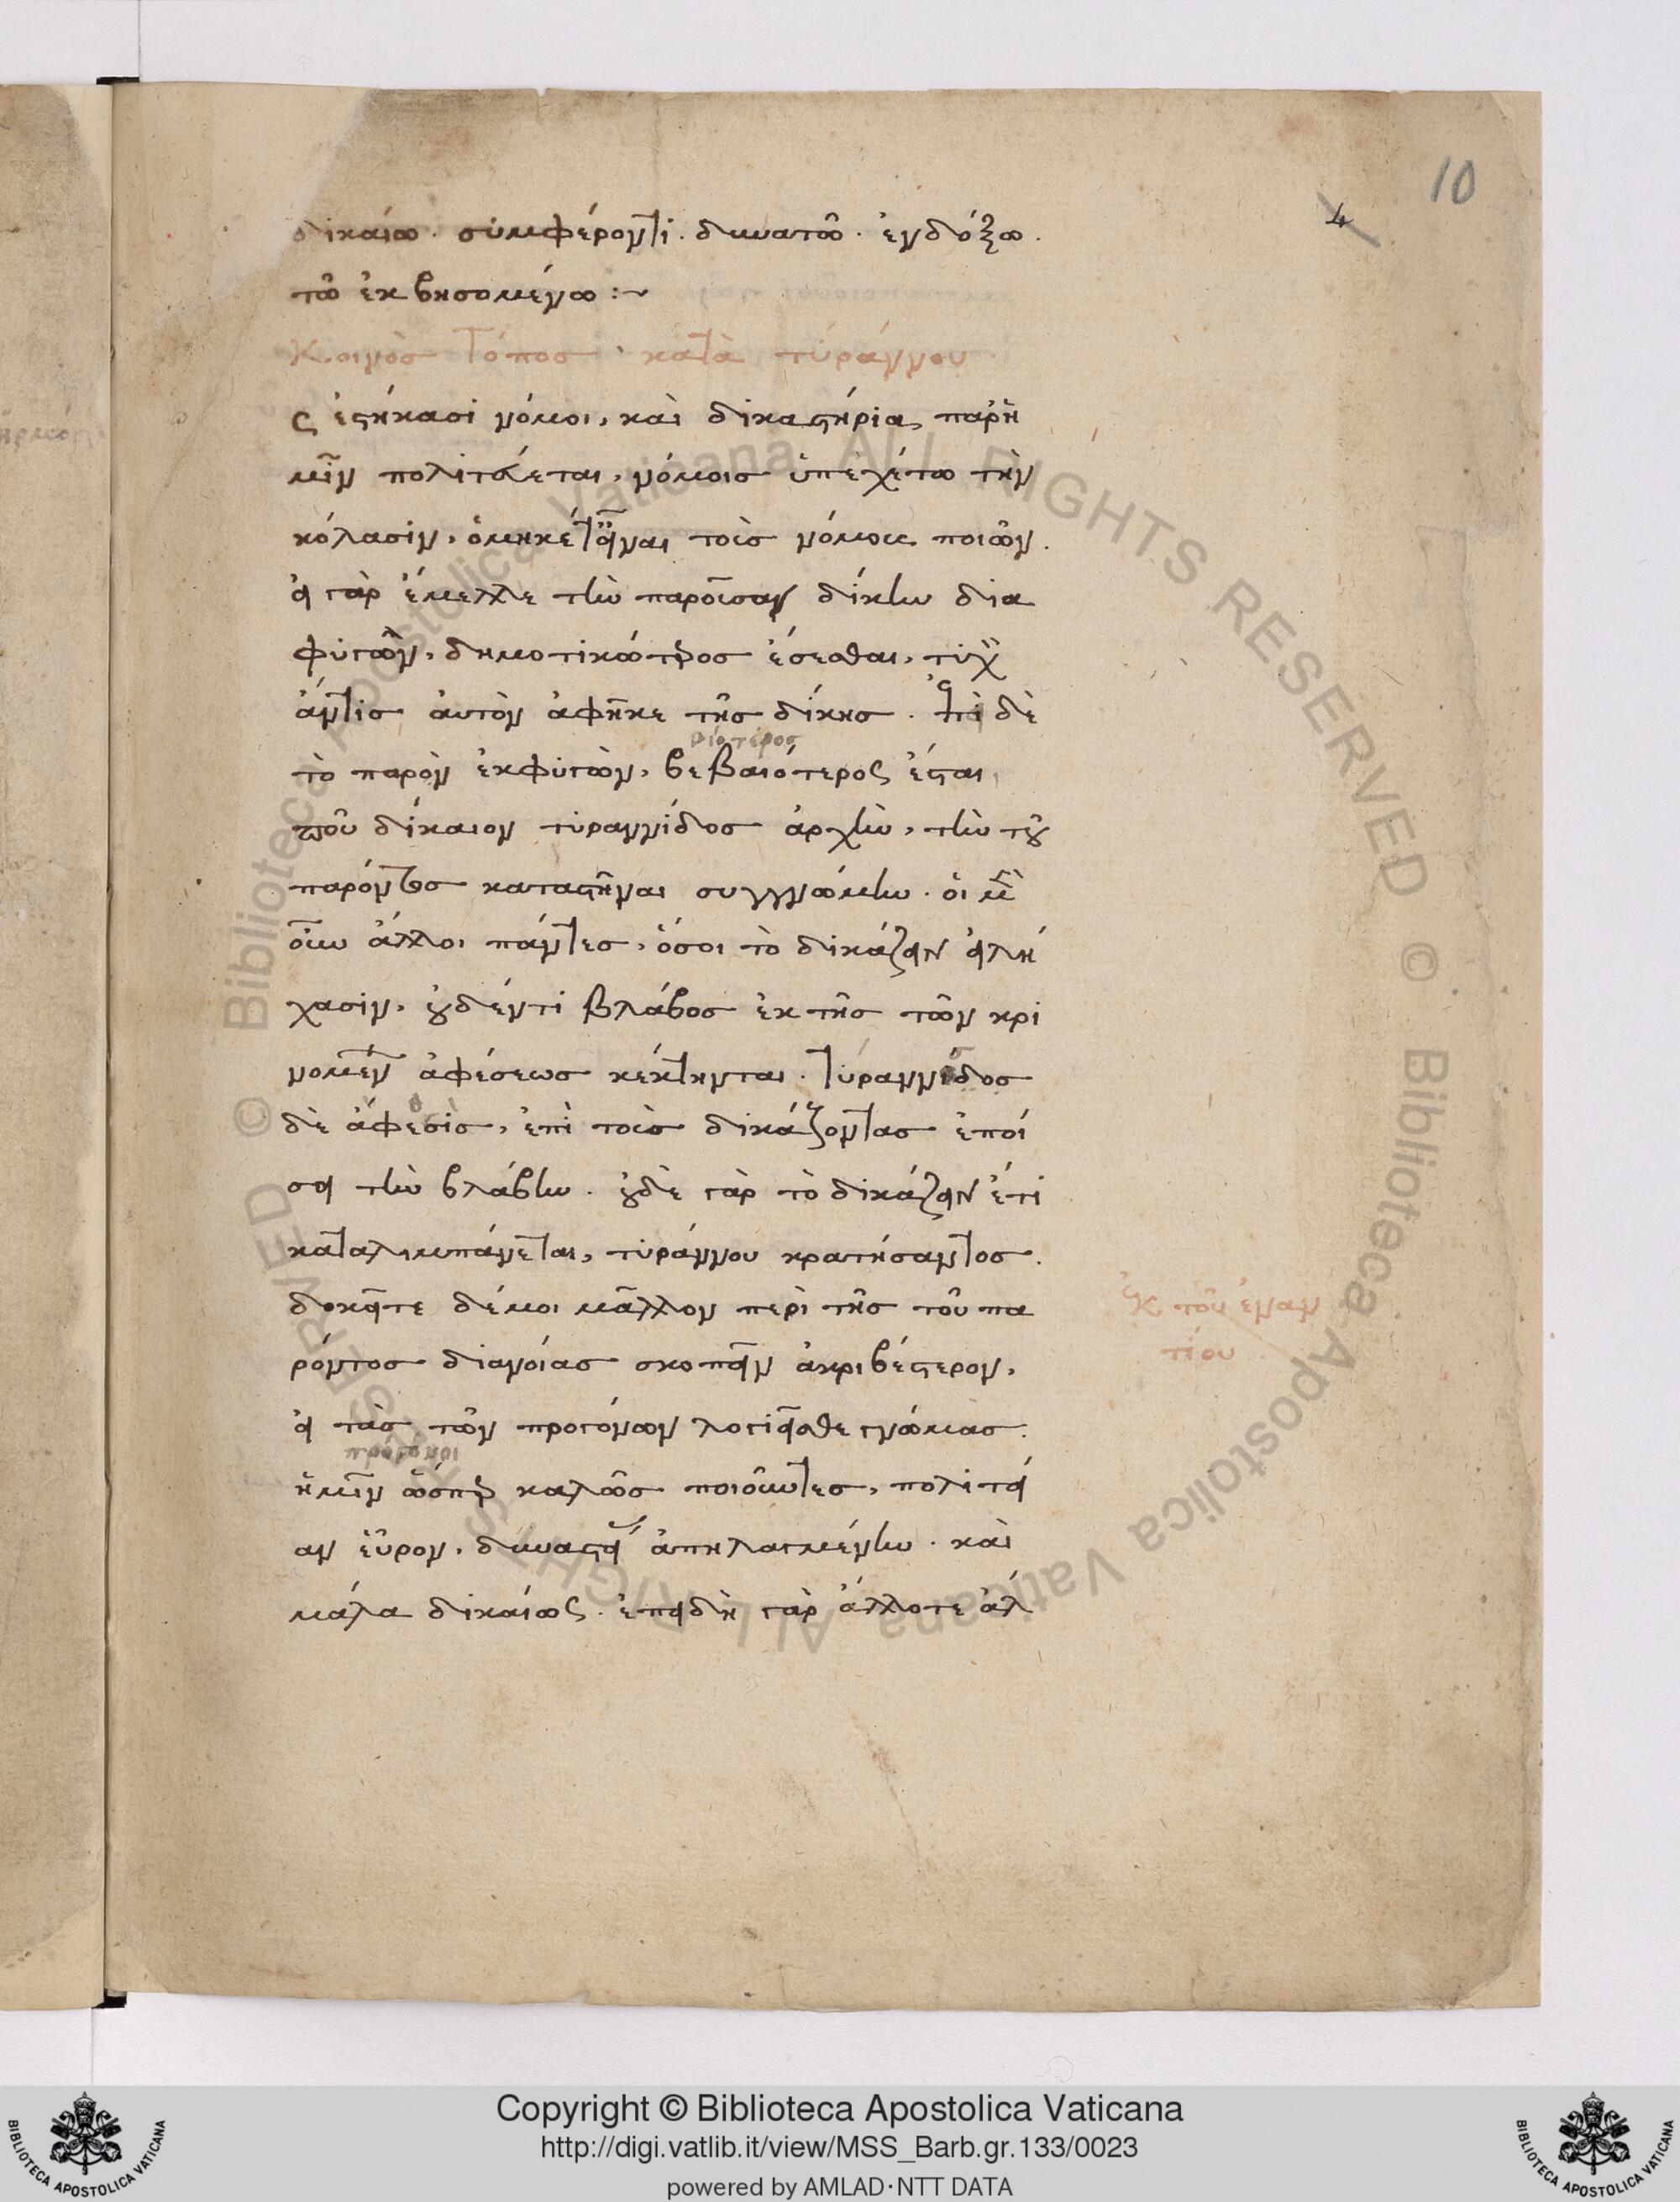 10
4
δικαίω. συμφέροντι. δυνατῶ. ἐνδόξω.
τῶ ἐκβησομένω:~
Κοινὸσ τόποσ κατὰ τυράννου
ς ἑστήκασι νόμοι, καὶ δικαστήρια παρ' ἡ
μῖν πολιτεύεται, νόμοισ ὑπεχέτω τὴν
κόλασιν, ὁ μηκέτ' εἶναι τοὺσ νόμους ποιῶν.
εἰ γὰρ ἔμελλε τὴν παροῦσαν δίκην δια
φυγὼν, δημοτικώτεροσ ἔσεσθαι, τάχ'
ἄν τισ αὐτὸν ἀφῆκε τῆσ δίκησ. ἐπεὶ δὲ
τὸ παρὸν ἐκφυγὼν, βεβαιότερος ἔσται
ποῦ δίκαιον τυραννίδοσ ἀρχὴν, τὴν τοῦ
παρόντοσ καταστῆναι συγγνώμην. οἱ μὲν
οὖν ἄλλοι πάντεσ, ὅσοι τὸ δικάζειν εἰλή
χασιν, οὐδέν τι βλάβοσ ἐκ τῆσ τῶν κρι
νομένων ἀφέσεωσ κέκτηνται. τυραννίδοσ
δὲ ἄφεσισ, ἐπὶ τοὺσ δικάζοντασ ἐποί
σει τὴν βλάβην. οὐδὲ γὰρ τὸ δικάζειν ἔτι
καταλιμπάνεται, τυράννου κρατήσαντοσ.
δοκεῖτε δέ μοι μᾶλλον περὶ τῆσ τοῦ πα
ρόντοσ διανοίασ σκοπεῖν ἀκριβέστερον,
εἰ τὰσ τῶν προγόνων λογιεῖσθε γνώμασ.
ἡμῖν ὥσπερ καλῶσ ποιοῦντεσ, πολιτεί
αν εὗρον, δυναστείασ ἀπηλλαγμένην. καὶ
μάλα δικαίως. ἐπειδὴ γὰρ ἄλλοτε ἀλ
ἐκ τοῦ ἐναν
τίου
Copyright © Biblioteca Apostolica Vaticana
http://digi.vatlib.it/view/MSS_Barb.gr.133/0023
powered by AMLAD·NTT DATA
BIBLIOTECA APOSTOLICA VATICANA
BIBLIOTECA APOSTOLICA VATICANA
© Biblioteca Apostolica Vaticana ALL RIGHTS RESERVED © Biblioteca Apostolica Vaticana ALL RIGHTS RESERVED